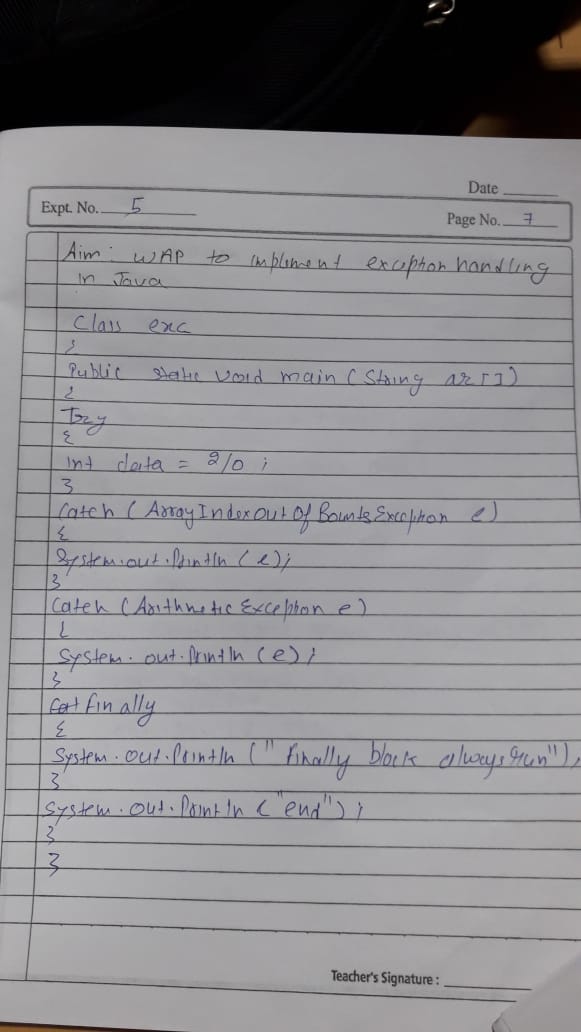 Date
Expt. No. 5
Page No. 7
Aim : WAP to implement exception handling
in Java
Class exc
{
Public static void main (String ar[])
{
Try
{
Int data = 2/0 ;
}
Catch (ArrayIndexOutOfBoundsException e)
{
System.out.Println (e);
}
Catch (Arithmetic Exception e)
{
System.out.Println (e);
}
finally
{
System.out.Println (" Finally block always run");
}
System.out.Println ("end");
}
}
Teacher's Signature :